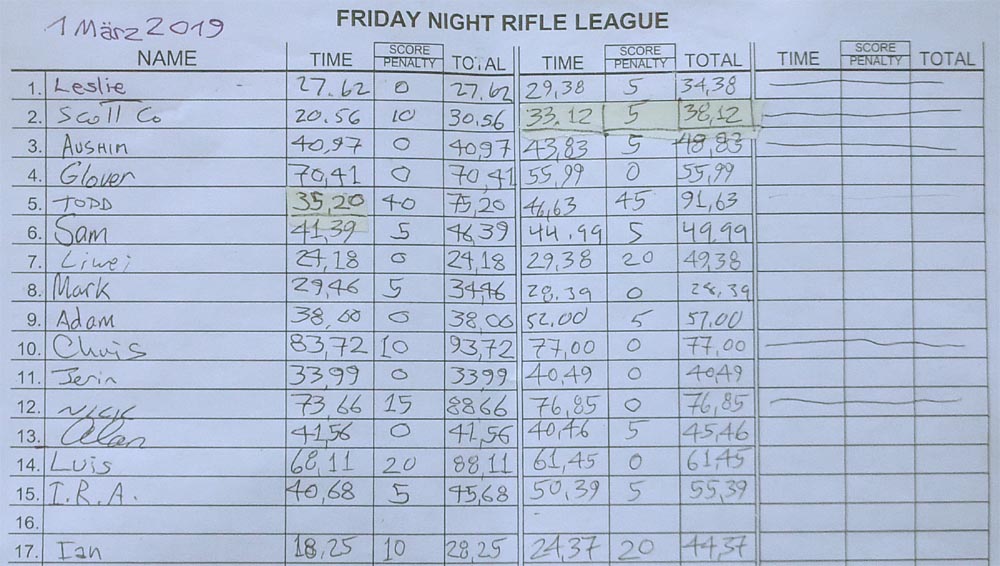 1 März 2019
FRIDAY NIGHT RIFLE LEAGUE
NAME TIME SCORE PENALTY TOTAL TIME SCORE PENALTY TOTAL TIME SCORE PENALTY TOTAL
1. Leslie 27.62 0 27.62 29,38 5 34,38
2. Scott Co 20.56 10 30.56 33.12 5 38,12
3. AUSHIM 40,97 0 40,97 43,83 5 48,83
4. Glover 70,41 0 70,41 55,99 0 55,99
5. TODD 35,20 40 75,20 46,63 45 91,63
6. Sam 41,39 5 46,39 44.99 5 49,99
7. Liwei 24,18 0 24,18 29,38 20 49,38
8. Mark 29,46 5 34,46 28.39 0 28,39
9. Adam 38,00 0 38,00 52.00 5 57,00
10. Chris 83,72 10 93,72 77,00 0 77,00
11. Jerin 33,99 0 33,99 40,49 0 40,49
12. NICK 73,66 15 88,66 76,85 0 76,85
13. Alan 41,56 0 41,56 40,46 5 45,46
14. Luis 68,11 20 88,11 61,45 0 61,45
15. I.R.A. 40,68 5 45,68 50,39 5 55,39
16.
17. Ian 18,25 10 28,25 24,37 20 44,37